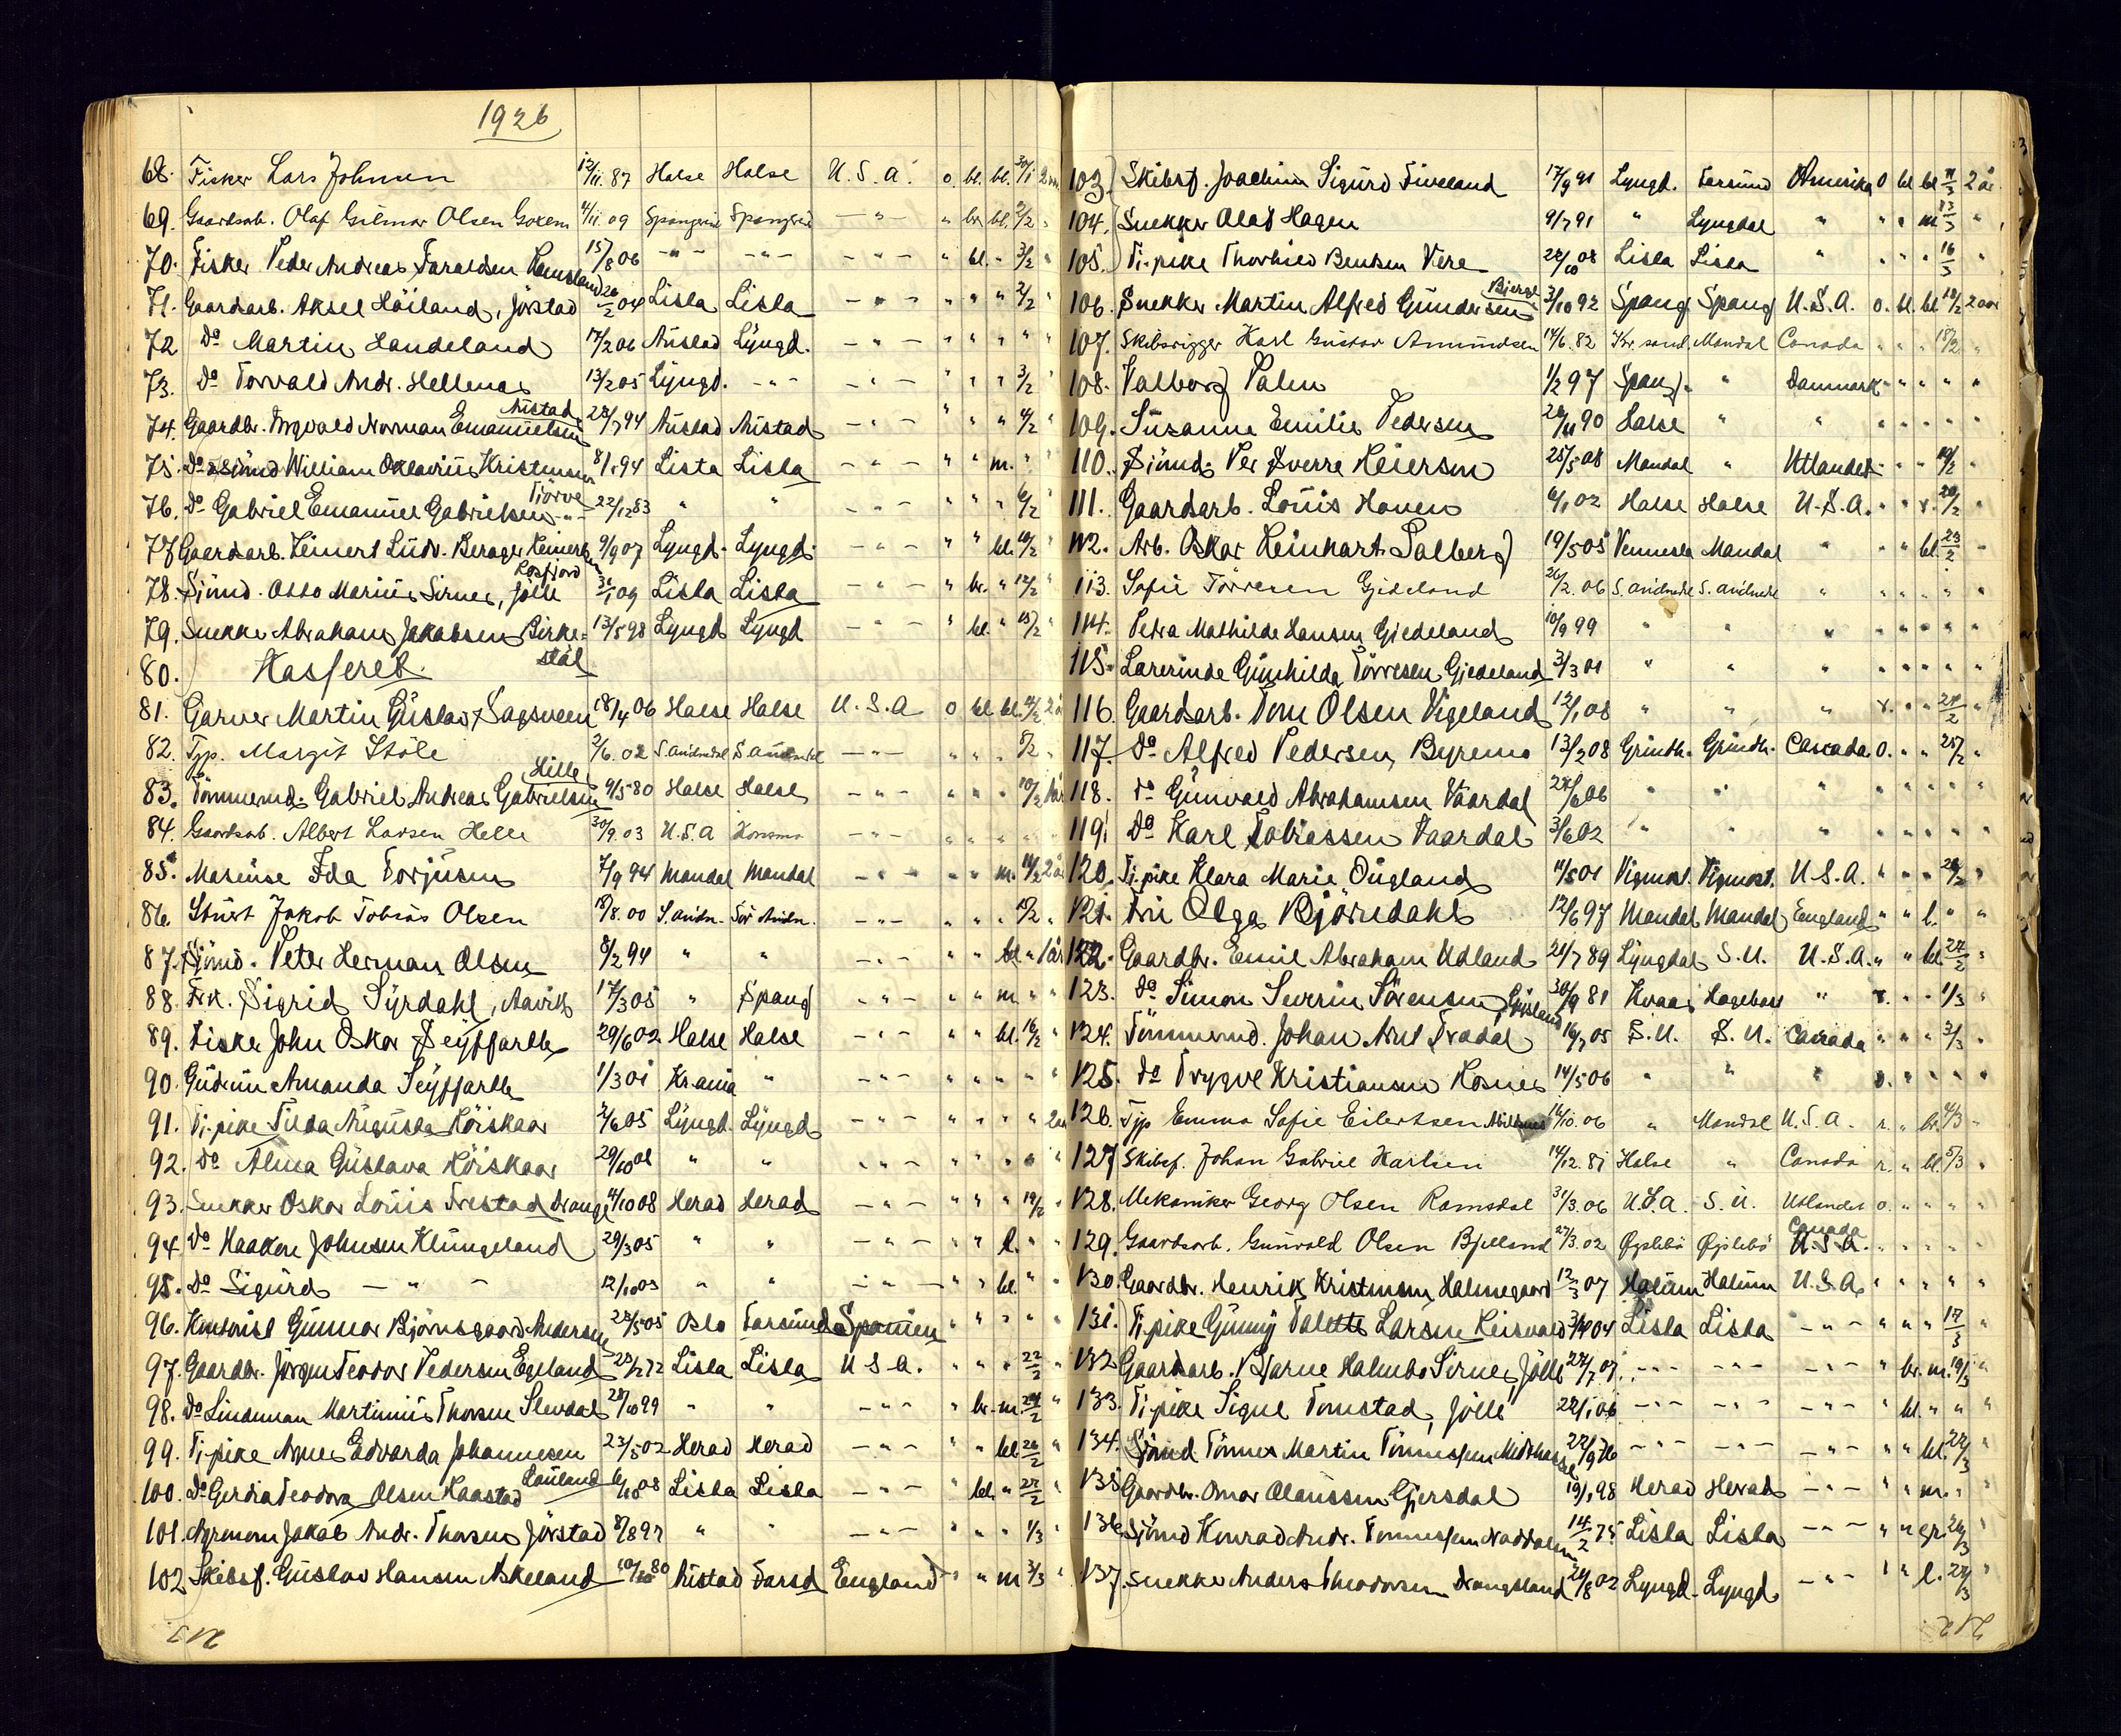 1926
68. Fisker Lars Johnsen 12/11.87 Halse Halse U.S.A. o. bl. bl. 30/1
69. Gaardsarb. Olaf Gilmar Olsen 4/11 09 Spangreid Spangreid — " — " br. bl. 2/2 "
70. Fisker Peder Andreas Faraldsen Ramsland 15/8 06 — " — — " — — " — " bl. " 3/2 "
71. Gaardarb. Aksel Höiland, Jörstad 26/2 04 Lista Lista — " — " " " 2/2 "
72 Do Martin Handeland 17/2 06 Austad Lyngd. — " — " " " " "
73. Do Torvald Andr. Hellenes 13/2 05 Lyngd. — " — — " — " " " 3/2 "
74. Gaardbr. Ingvald Norman Emanuelsen Austad 28/7 94 Austad Austad — " — " " " 4/2 "
75. Do William Oktavius Kristensen 8/1 94 Lista Lista — " — " " m. " "
76. Do Gabriel Emanuel Gabrielsen Tjörve 22/12 83 " " — " — " " " 6/2 "
77 Gaardarb. Reinert Ludv. Berager Reinertsen Rosfjord 9/9 07 Lyngd. Lyngd. — " — " " bl. 10/2 "
78. Sjömd. Otto Marius Sirnes, Jölle 31/1 09 Lista Lista — " — " br. " 12/2 "
79. Snekker Abraham Jakobsen Birke=stöl 13/5 98 Lyngd Lyngd — " — " bl. " 15/2 "
80. Kasseret.
81. Garver Martin Gustav Sagsveen 18/4 06 Halse Halse U.S.A o bl bl. 4/2 2 år
82. Tjp. Margit Stöle 2/6. 02 S. Audnedal S. Audnedal — " — " " " 8/2 "
83. Tömmermd. Gabriel Andreas Gabrielsen Hille 9/5 80 Halse Halse — " — " " " 10/2 1 år
84. Gaardsarb. Albert Larsen Helle 30/9. 03 U.S.A Konsmo — " — " " " " "
85. Marense Ida Torjusen 7/9 94 Mandal Mandal — " — " " m. 12/2 2 år
86. Stuert Jakob Tobias Olsen 18/8. 00 S. Audn. Sör Audn. — " — " " " 15/2 "
87. Sjömd. Peter Herman Olsen 8/2 94 " " — " — " " bl " 1 år
88. Frk. Sigrid Syrdahl, Aavik 17/3 05 " Spang — " — " " m. " "
89. Fisker John Oskar Seyffarth 29/6 02 Halse Halse — " — " " bl. 16/2 "
90. Gudrun Amanda Seyffarth 1/3 01 Krania " — " — " " " " "
91. Tj.pike Tilda Augusta Röiskaar 2/6 05 Lyngd. Lyngd. — " — " " " "
92. Do Alma Gustava Röiskaar 29/10 08 " " — " — " " " " "
93. Snekker Oskar Louis Frestad Drange 4/10 08 Herad Herad — " — " " " 19/2 "
94. Do Haakon Johnsen Klungeland 29/3 05 " " — " — " " l. " "
95. Do Sigurd — " — 12/10 03 " " — " — " " bl. " "
96. Kontorist Gunnar Björnsgaard Andersen 28/5 05 Oslo Farsund Spanien " " " " "
97. Gaardbr. Jörgen Teodor Pedersen Egeland 28/2 72 Lista Lista U S A. " " " 22/2 "
98. Do Lindeman Martinius Thorsen Slevdal 28/10 99 " " — " — " br. m. 24/2 "
99. Tj.pike Agnes Edvarda Johannesen 23/5 02 Herad Herad — " — " " bl. 26/2 "
100. Do Gerdia Teodora Olsen Haastad Lauland 6/10 08 Lista Lista — " — " bl. " 27/2 "
101. Agronom Jakob Andr. Thorsen Jörstad 8/8 97 " " — " — " " " 1/3 "
102 Skibsf. Gustav Hansen Askeland 10/10 80 Austad Farsd England " " m 3/3 "
103. Skibsf. Joachim Sigurd Fiveland 17/9 91 Lyngd. Farsund Amerika o bl bl 11/3 2 år
104. Snekker Olav Hagen 9/7 91 " Lyngdal " " " m 13/3 "
105. Tj.pike Thorhild Bentsen Vere 28/10 08 Lista Lista " " " " 16/3 "
106. Snekker Martin Alfred Gundersen Bjerge 3/10 92 Spang. Spang U.S.A. o. bl. bl 10/2 2 aar
107. Skibsrigger Karl Gustav Amundsen 14/6. 82 Kr. sand. Mandal Canada " " " 18/2 "
108. Valborg Palm 1/2 97 Spang. " Danmark " " " " "
109. Susanne Emilie Pedersen 28/11 90 Halse " " " " " " "
110. Sjömd. Per Sverre Reiersen 25/5 08 Mandal " Utlandet " " " 19/2 "
111. Gaardarb. Louis Haven 6/1 02 Halse Halse U.S.A. " " v. 20/2 "
112. Arb. Oskar Reinhart Salberg 19/5 05 Vennesla Mandal " " " bl. 23/2 "
113. Sofie Törresen Gjedeland 26/2. 06 S. Audnedal S. Audnedal " " " " " "
114. Petra Mathilde Hansen Gjedeland 10/9 99 " " " " " " " "
115. Lærerinde Gunhilda Törresen Gjedeland 3/3 01 " " " " " " " "
116. Gaardsarb. Tom Olsen Vigeland 12/1 08 " " " v. " " 24/2 "
117. Do Alfred Pedersen Byremo 13/2 08 Grindh. Grindh. Canada o. " " 25/2 "
118. Do Gunvald Abrahamsen Vaardal 27/6 06 " " " " " " " "
119. Do Karl Tobiassen Vaardal 3/6 02 " " " " " " " "
120. Tj.pike Klara Marie Ougland 11/5 01 Vigmost. Vigmost. U.S.A. " " " 26/2 "
121. Fru Olga Björndahl 12/6 97 Mandal Mandal England " " l. " "
122. Gaardbr. Emil Abraham Udland 21/7 89 Lyngdal S.U. U.S.A. " " bl. 27/2 "
123. Do Simon Severin Sörensen Gysland 30/9 81 Kvaas Hægebost " v. " " 1/3 "
124. Tömmermd. Johan Arnt Tradal 16/7 05 S.U. S.U. Canada " " " 3/3 "
125. Do Trygve Kristiansen Rosnes 14/5 06 " " " o. " " " "
126. Tjp Emma Sofie Eilertsen 14/10. 06 " Mandal U.S.A. r. " br. 4/3 "
127 Skibsf. Johan Gabriel Karlsen 14/12. 81 Halse " Canada r. " bl. 5/3 "
128. Mekaniker Georg Olsen Ramsdal 31/3. 06 U.S.A. S.U. Utlandet o. " " " "
129. Gaardsarb. Gunvald Olsen Bjelland 27/3. 02 Øyslebö Øyslebö Canada U.S.A. " " " " "
130. Gaardbr. Henrik Kristensen Halmegaard 12/3 07 Halum Halum U.S.A. " " " " "
131. Tj.pike Gunny Talette Larsen Reisvaag 04 Lista Lista — " — " " " 17/3 "
132 Gaardarb. Bjarne Halmbo Sirnes, Jölle 27/7 07 — " — — " — — " — " br. m. 19/3 "
133. Tj.pike Signe Tomstad, Jölle 22/1 06 — " — — " — — " — " bl. " " "
134. Sjömd Tönnes Martin Tönnessen Midthassel 22/9 76 — " — — " — — " — " " bl. 22/3 "
135 Gaardbr. Omar Olaussen Gjersdal 19/1 98 Herad Herad — " — " " m. " "
136 Sjömd Konrad Andr. Tönnessen 14/2 75 Lista Lista — " — " " gr. 26/3 "
137. Snekker Anders Theodorsen Drangsland 24/8 02 Lyngd. Lyngd. — " — " " l. 27/3 "